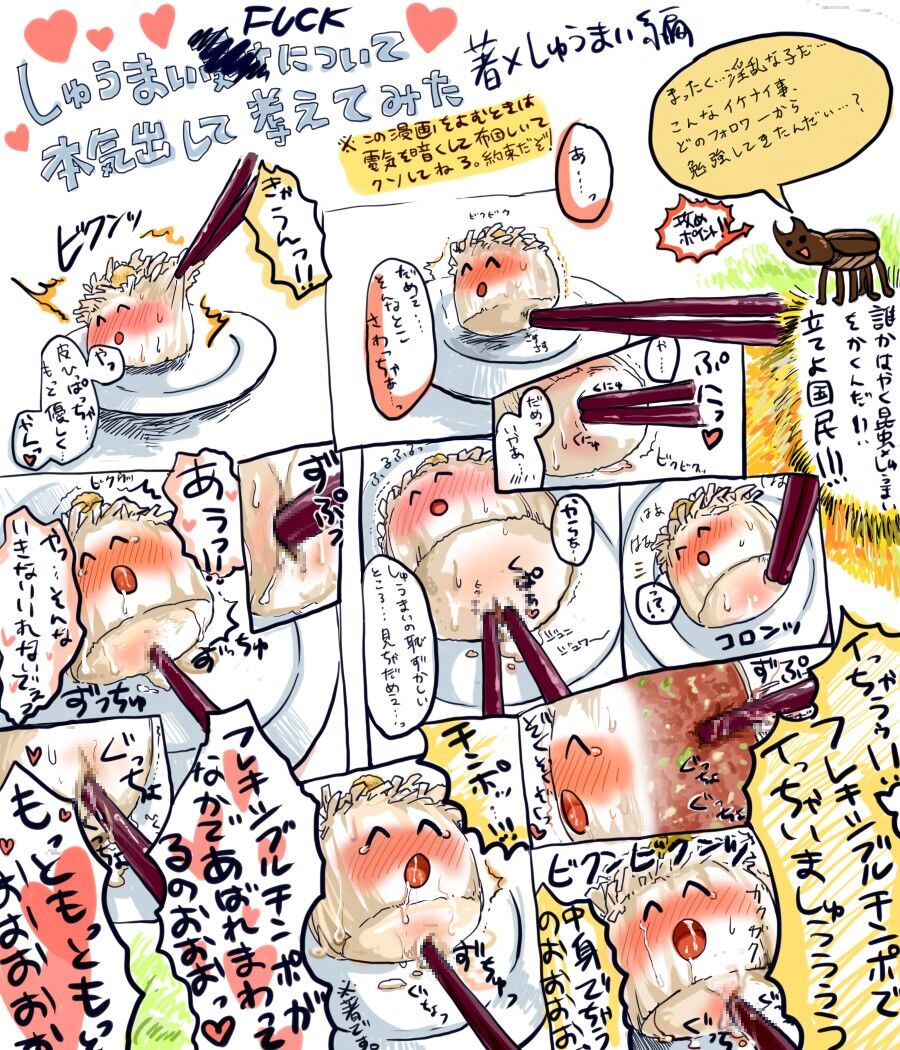 FUCK
しゅうまい
について
本気出して 考えてみた
著×しゅうまい編
※この漫画をよむときは
電気を暗くして布団しいて
クソしてねろ。約束だぞ!
まったく…淫乱な子だ…
こんなイケナイ事、
どのフォロワーから
勉強してきたんだい…?
攻め
ポイント!!
誰かはやく昆虫×しゅうまい
をかくんだ!!!
立てよ国民!!!
あ…っ
ビクビク
だめて…
そんなとこ
さわっちゃあっ
さすさす
きゃうんっ!!
ビクンッ
やっ
皮ひっぱっちゃ…
もっと優しく…
やんっ♥
ぷにっ♥
や…
くにゅ
くにゅ
だめっ
いやぁ…
ビクビクッ
はぁ
はぁ
はぁ
っ?
コロンッ
ふるふるっ
やらぁ…
しゅうまいの恥ずかしい
ところ…見ちゃだめえ…っ
ずぷっ
あうっ!!
ビクゥッ
やっ…そんな
いきないいれないでえっ
ずっちゅ
ずっちゅ
ずぷ
イっちゃうぅぃ
フレキシブルチンポで
イっちゃいましゅうううっ
チンポッ!!!
ずちゅ
ぐちょっ
※箸です。
ぐっちょ
フレキシブルチンポが
なかであばれまわって
るのおおおっ♥
もっともっともっ
おおおおお
ビクンビクンッ
ガクガク
中身でちゃう
のおおおお
ぐ
ぐ